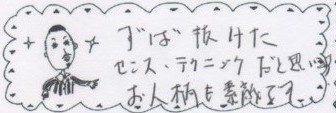 ずば抜けた
センス・テクニックだと思い
お人柄も素敵です